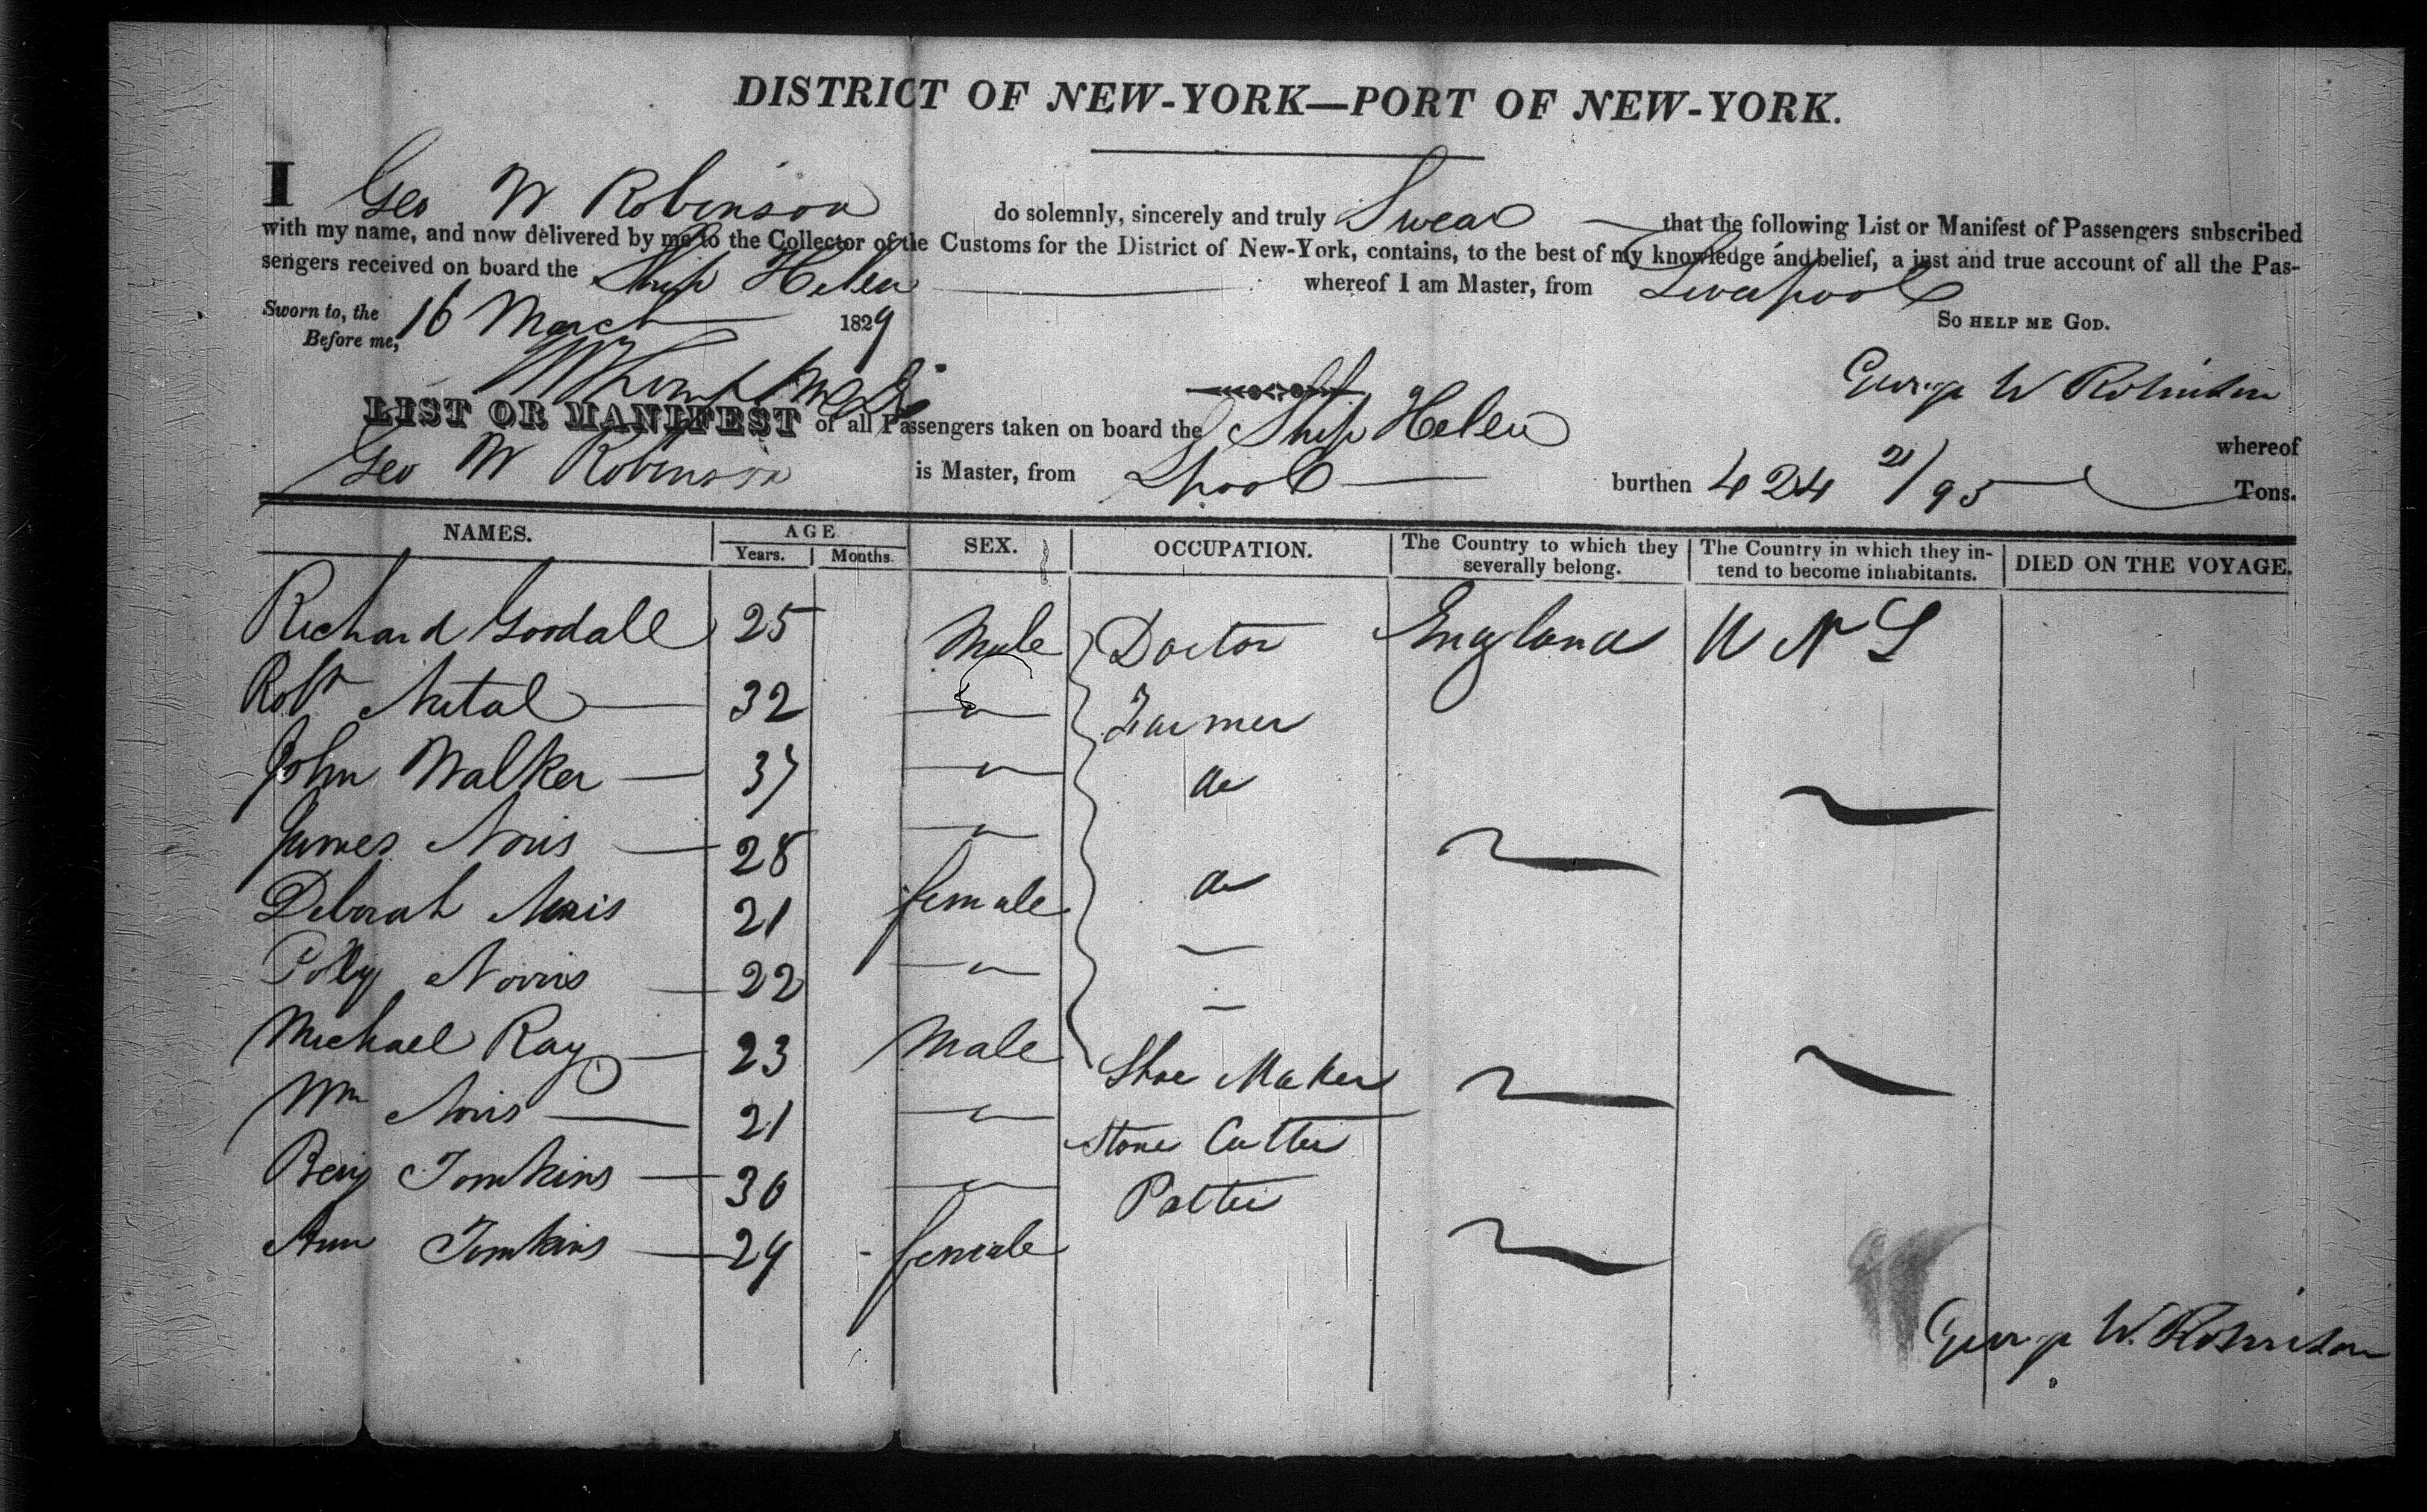 DISTRICT OF NEW-YORK—PORT OF NEW-YORK.
I Geo W Robinson do solemnly, sincerely and truly Swear that the following List or Manifest of Passengers subscribed
with my name, and now delivered by me to the Collector of the Customs for the District of New-York, contains, to the best of my knowledge and belief, a just and true account of all the Pas-
sengers received on board the Ship Helen whereof I am Master, from Liverpool
Sworn to, the 16 March 1829 So HELP ME GOD.
Before me,
George W Robinson
LIST OR MANIFEST of all Passengers taken on board the Ship Helen whereof
Geo W Robinson is Master, from Lpool burthen 424 21/95 Tons.
NAMES. AGE. Years. Months. SEX. OCCUPATION. The Country to which they severally belong. The Country in which they in-tend to become inhabitants. DIED ON THE VOYAGE.
Richard Goodall 25 Male Doctor England
Robt Nutal 32 " Farmer
John Walker 37 " do
James Noris 28 " do
Deborah Noris 21 female —
Polly Norris 22 " —
Michael Ray 23 Male Shoe Maker
Wm Noris 21 " Stone Cutter
Benj Tomkins 30 " Potter
Ann Tomkins 29 female
George W. Robinson